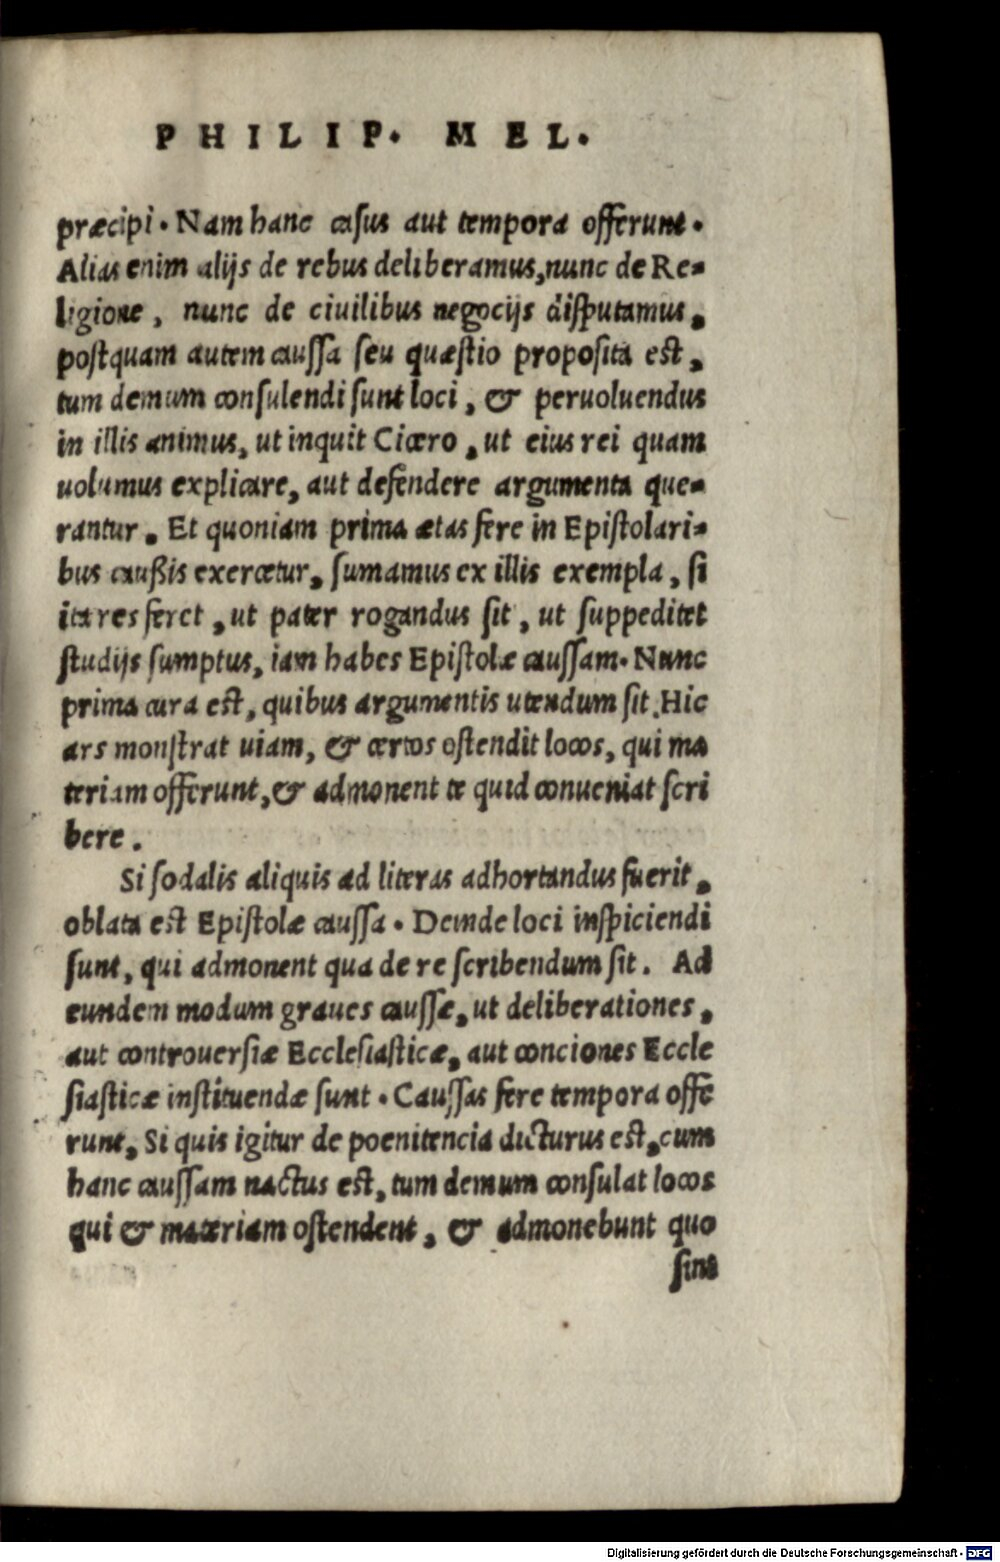 PHILIP. MEL.
præcipi. Nam hanc casus aut tempora offerunt.
Alias enim alijs de rebus deliberamus, nunc de Re-
ligione, nunc de ciuilibus negocijs disputamus,
postquam autem caussa seu quæstio proposita est,
tum demum consulendi sunt loci, & peruoluendus
in illis animus, ut inquit Cicero, ut eius rei quam
uolumus explicare, aut defendere argumenta que-
rantur. Et quoniam prima ætas fere in Epistolari-
bus caußis exercetur, sumamus ex illis exempla, si
ita res feret, ut pater rogandus sit, ut suppeditet
studijs sumptus, iam habes Epistolæ caussam. Nunc
prima cura est, quibus argumentis utendum sit. Hic
ars monstrat uiam, & certos ostendit locos, qui ma
teriam offerunt, & admonent te quid conueniat scri
bere.
Si sodalis aliquis ad literas adhortandus fuerit,
oblata est Epistolæ caussa. Deinde loci inspiciendi
sunt, qui admonent qua de re scribendum sit. Ad
eundem modum graues caussæ, ut deliberationes,
aut controuersiæ Ecclesiasticæ, aut conciones Eccle
siasticæ instituendæ sunt. Caussas fere tempora offe
runt, Si quis igitur de poenitencia dicturus est, cum
hanc caussam nactus est, tum demum consulat locos
qui & materiam ostendent, & admonebunt quo
sint
Digitalisierung gefördert durch die Deutsche Forschungsgemeinschaft - DFG